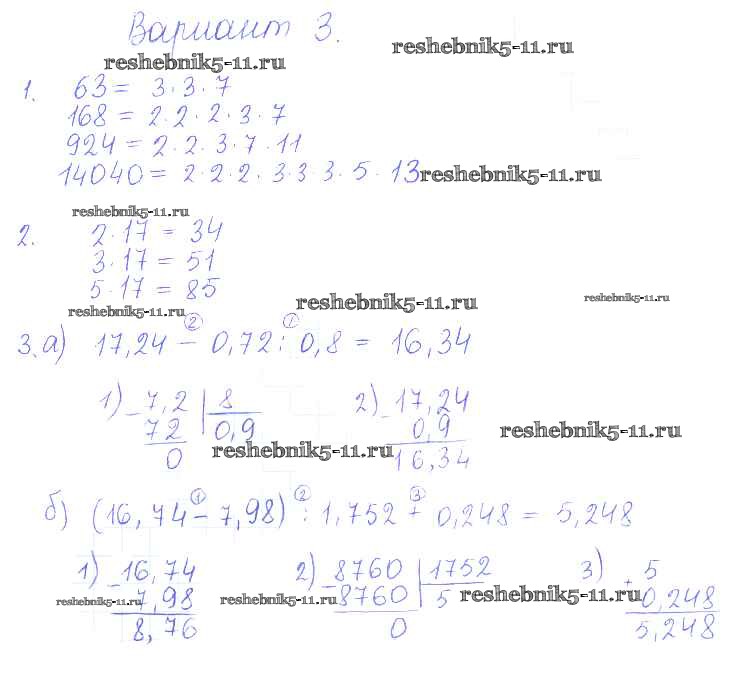 Вариант 3.
reshebnik5-11.ru
reshebnik5-11.ru
1. 63 = 3 · 3 · 7
168 = 2 · 2 · 2 · 3 · 7
924 = 2 · 2 · 3 · 7 · 11
14040 = 2 · 2 · 2 · 3 · 3 · 3 · 5 · 13
reshebnik5-11.ru
reshebnik5-11.ru
2. 2 · 17 = 34
3 · 17 = 51
5 · 17 = 85
reshebnik5-11.ru
reshebnik5-11.ru
reshebnik5-11.ru
② ①
3. а) 17,24 − 0,72 : 0,8 = 16,34
1) − 7,2 | 8
72 0,9
0
2) − 17,24
0,9
16,34
reshebnik5-11.ru
reshebnik5-11.ru
① ② ③
б) (16,74 − 7,98) : 1,752 + 0,248 = 5,248
1) − 16,74
7,98
8,76
2) − 8760 | 1752
8760 5
0
3) + 5
0,248
5,248
reshebnik5-11.ru
reshebnik5-11.ru
reshebnik5-11.ru